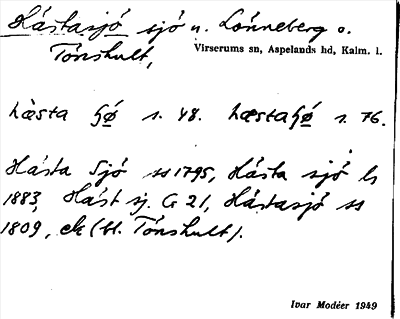 Hästasjö sjö u. Lönneberg o.
Tönshult,
Virserums sn, Aspelands hd, Kalm. l.
hæsta ʃø s. 48. hæstaʃø s. 76.
Hästa Sjö ss 1795, Hästa sjö ls
1883, Häst sj. G 21, Hästasjö ss
1809, ek (bl. Tönshult).
Ivar Modéer 1949